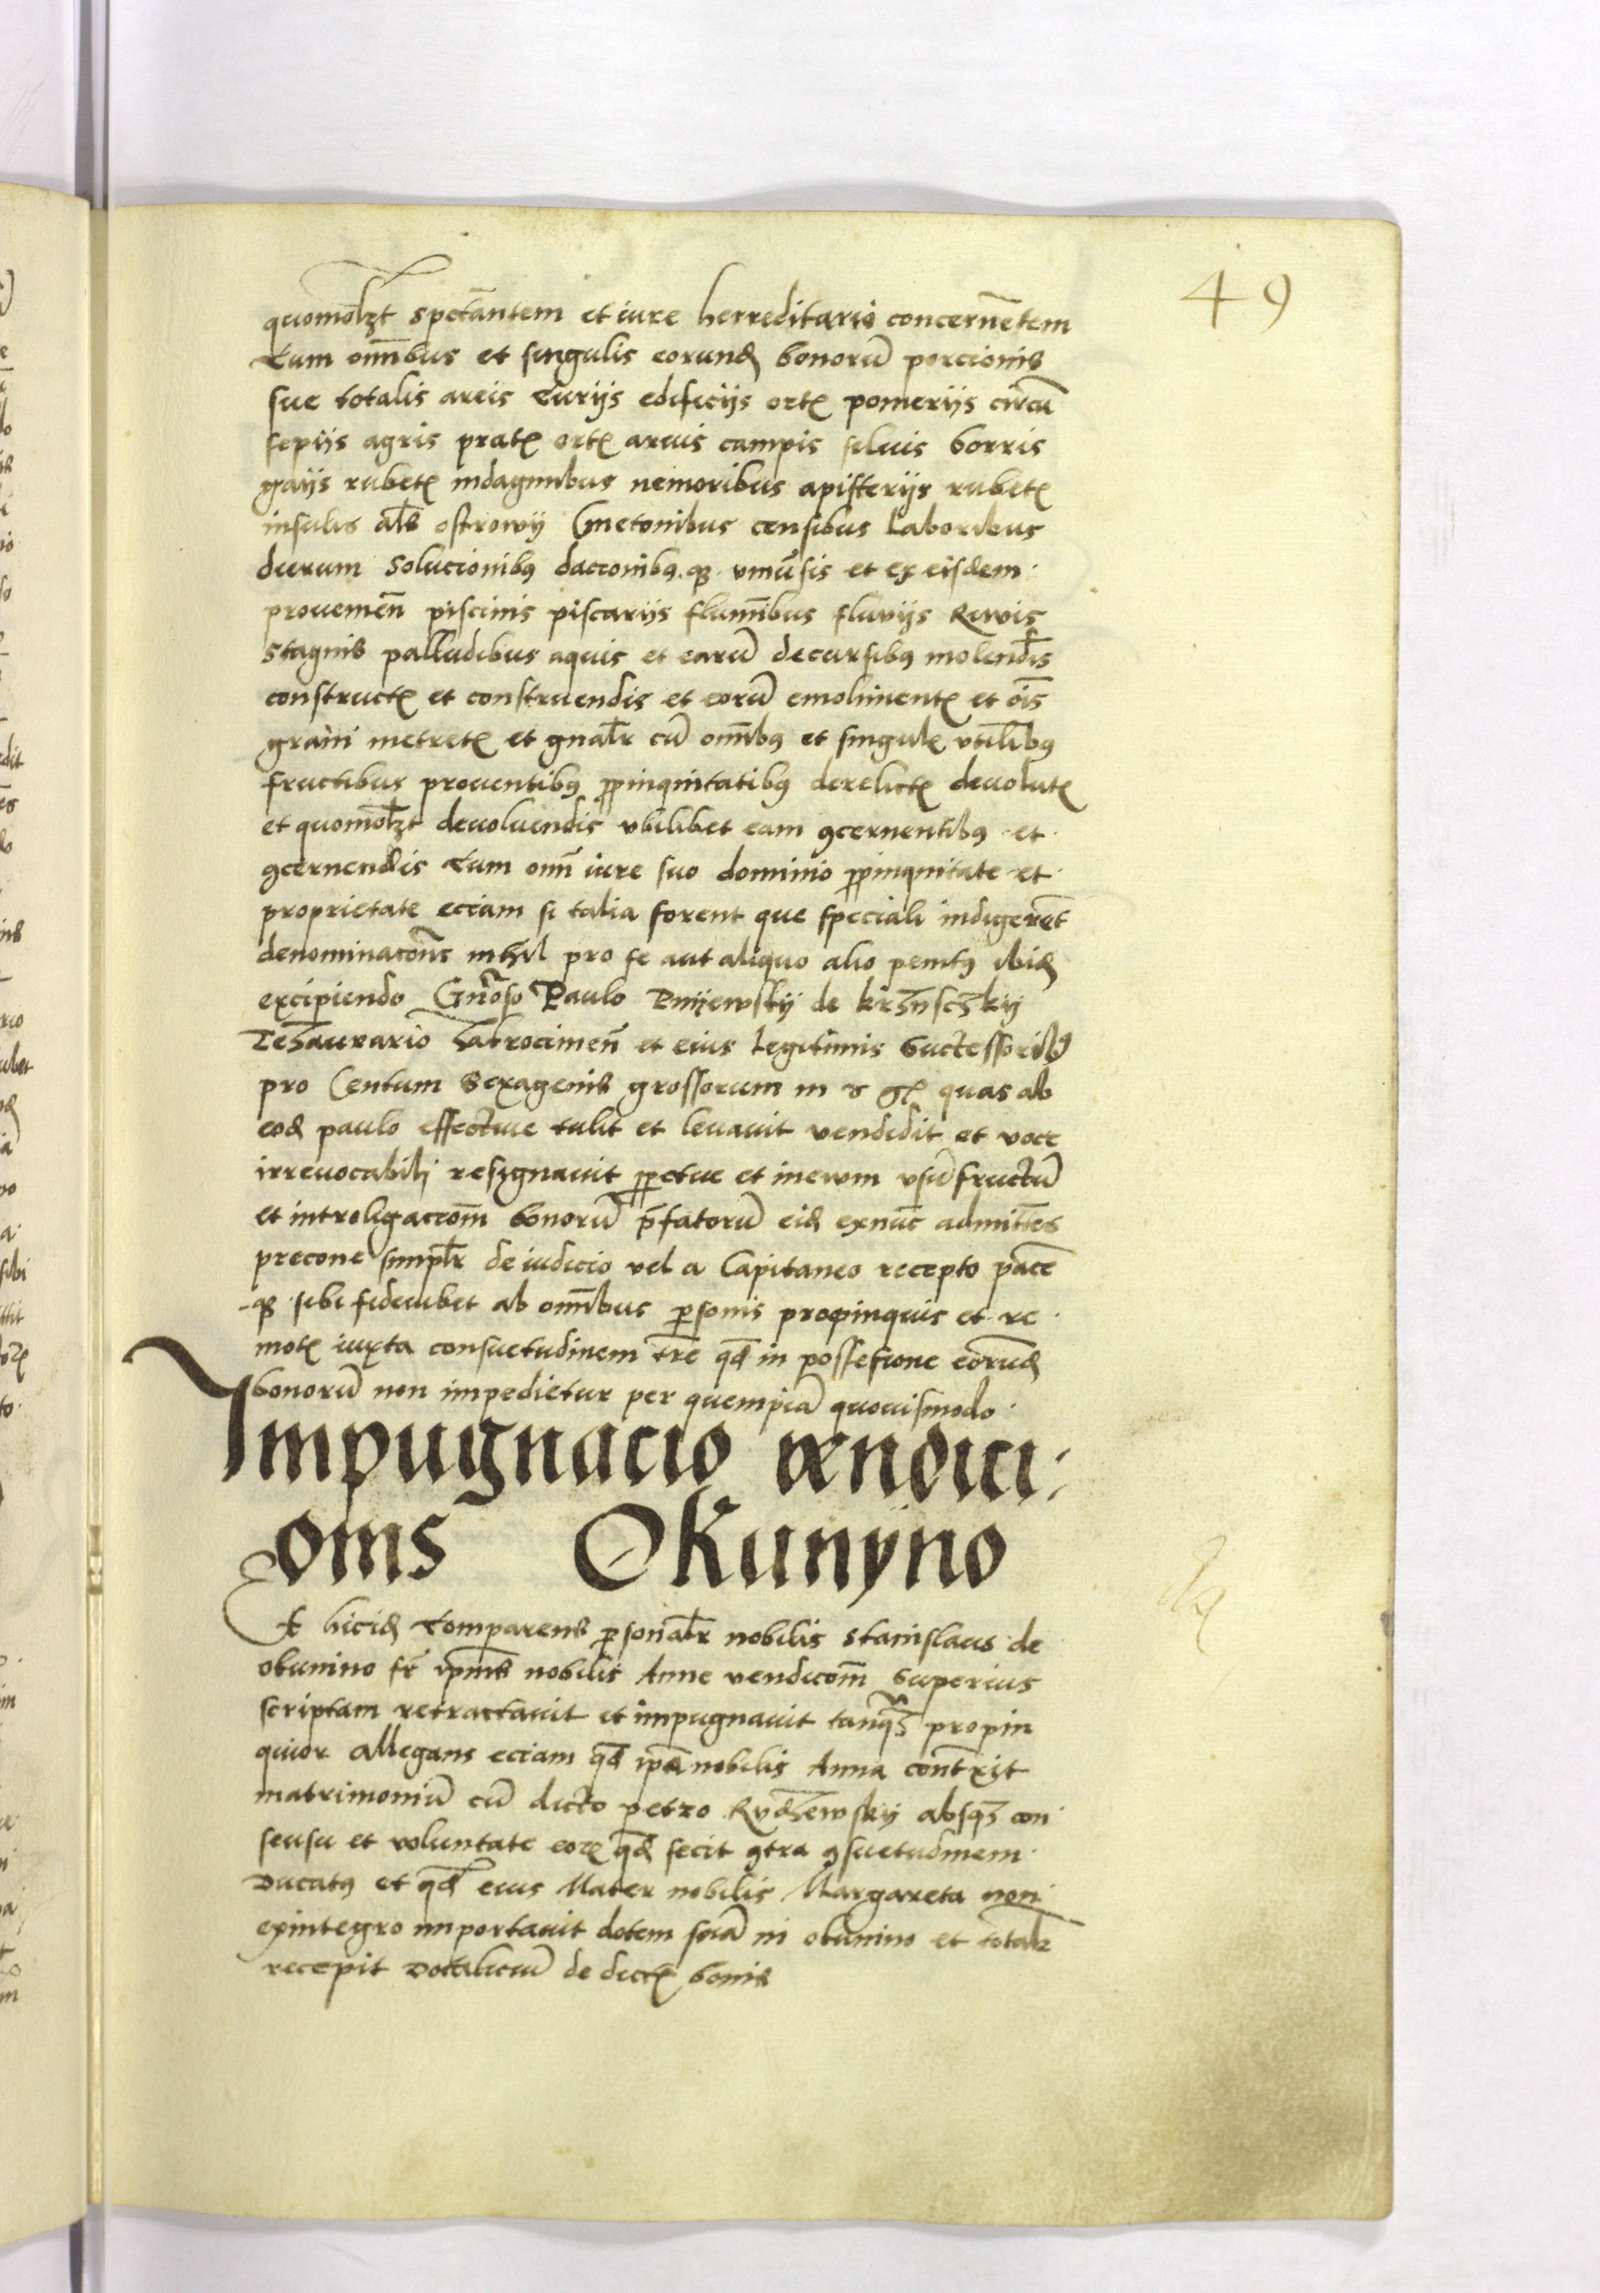 49
quomolzt spectantem et iure herreditario concernentem
Cum omnibus et singulis eorund bonorum porcionis
sue totalis areis Curijs edificijs ort pomerijs circum
sepijs agris prat ort aruis campis siluis borris
gaijs rubet indaginibus nemoribus apisterijs rubet
insulis als ostrowy Cmetonibus censibus Laboribus
dierum Solucionibus dacionibus qz vniuersis et ex eisdem
prouenien piscinis piscarijs fluminibus fluuijs Riwis
Stagnis palludibus aquis et earum decursibus molendis
construct et construendis et eorum emoliment et ois
grani metret et gnalr cum omnibus et singul vtilibus
fructibus prouentibus propinquitatibus derelict deuolut
et quomolzt deuoluendis vbilibet eam concernentibus et
concernendis Cum omni iure suo dominio propinquitate et
proprietate eciam si talia forent que speciali indigerent
denominacionis nihil pro se aut aliquo alio penitus ibid
excipiendo Gnroso Paulo de
Tesaurario et eius Legitimis Successoribus
pro Centum Sexagenis grossorum in quas ab
eod paulo effectiue tulit et leuauit vendidit et voce
irreuocabili resignauit perpetue et in eum vsum fructum
et introligacionem bonorum prefatorum eid exnunc admittens
precone simplr de iudicio vel a Capitaneo recepto pacem
qz sibi fideiubet ab omnibus personis propinquis et re
mot iuxta consuetudinem tre qd in possessione eorund
bonorum non impedietur per quempiam quouismodo
Impugnacio vendici
onis Okunyno
Et ibid Comparens personalr nobilis Stanislaus de
okunino fr ipius nobilis Anne vendicionem Superius
scriptam retractauit et impugnauit tanqz propin
quior allegans eciam qd ipa nobilis Anna contraxit
matrimonium cum dicto petro absqz con
sensu et voluntate eorum qd fecit contra consuetudinem
Ducatus et qd eius Mater nobilis Margareta non
exintegro importauit dotem suam in okunino et total
recepit Dotalicium de dict bonis